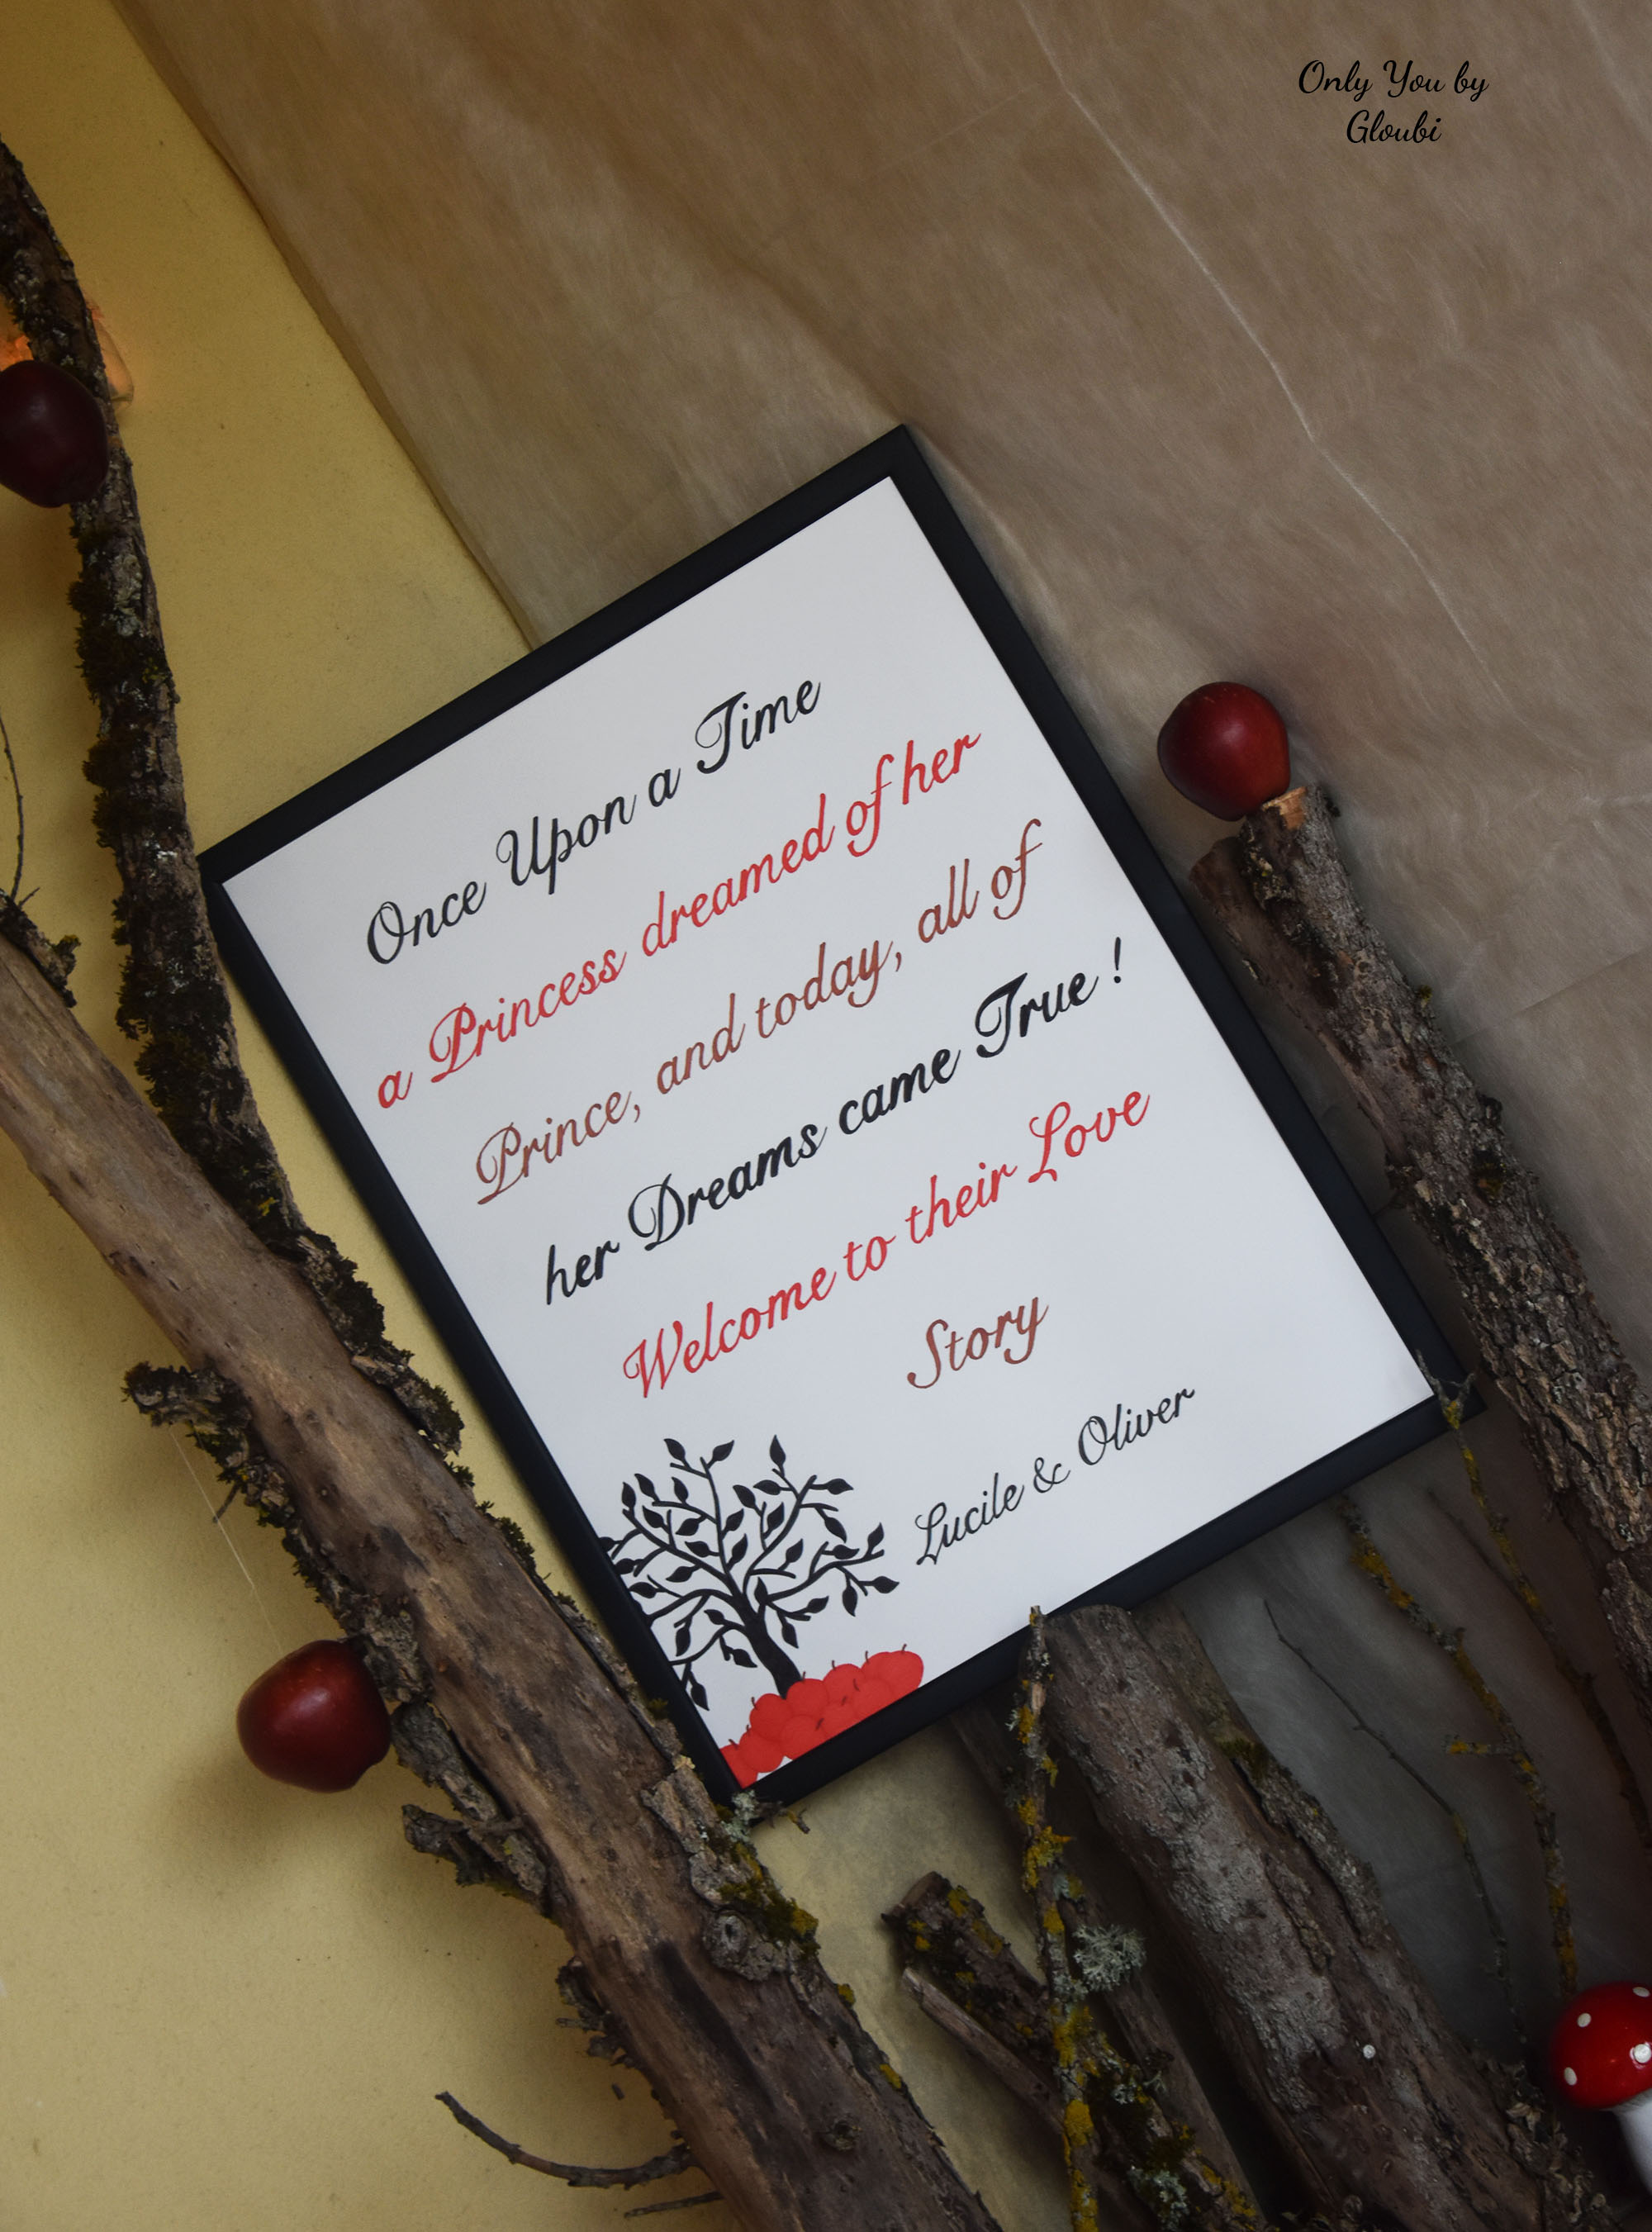 Only You by
Gloubi
Once Upon a Time
a Princess dreamed of her
Prince, and today, all of
her Dreams came True !
Welcome to their Love
Story
Lucile & Oliver